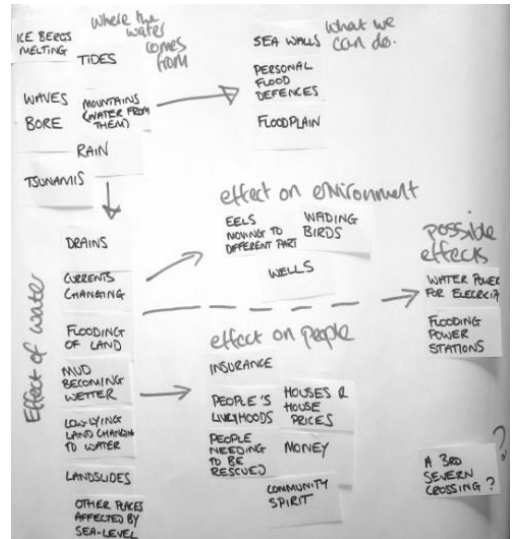 where the
water
comes
from
ICE BERGS
MELTING
TIDES
WAVES
BORE
MOUNTAINS
(WATER FROM
THEM)
RAIN
TSUNAMIS
what we
can do.
SEA WALLS
PERSONAL
FLOOD
DEFENCES
FLOODPLAIN
Effect of water
DRAINS
CURRENTS
CHANGING
FLOODING
OF LAND
MUD
BECOMING
WETTER
LOW-LYING
LAND CHANGING
TO WATER
LANDSLIDES
OTHER PLACES
AFFECTED BY
SEA-LEVEL
effect on environment
EELS
MOVING TO
DIFFERENT PART
WADING
BIRDS
WELLS
effect on people
INSURANCE
PEOPLE'S
LIVLIHOODS
HOUSES &
HOUSE
PRICES
PEOPLE
NEEDING
TO BE
RESCUED
MONEY
COMMUNITY
SPIRIT
possible
effects
WATER POWER
FOR ELECRICITY
FLOODING
POWER
STATIONS
A 3RD
SEVERN
CROSSING?
?